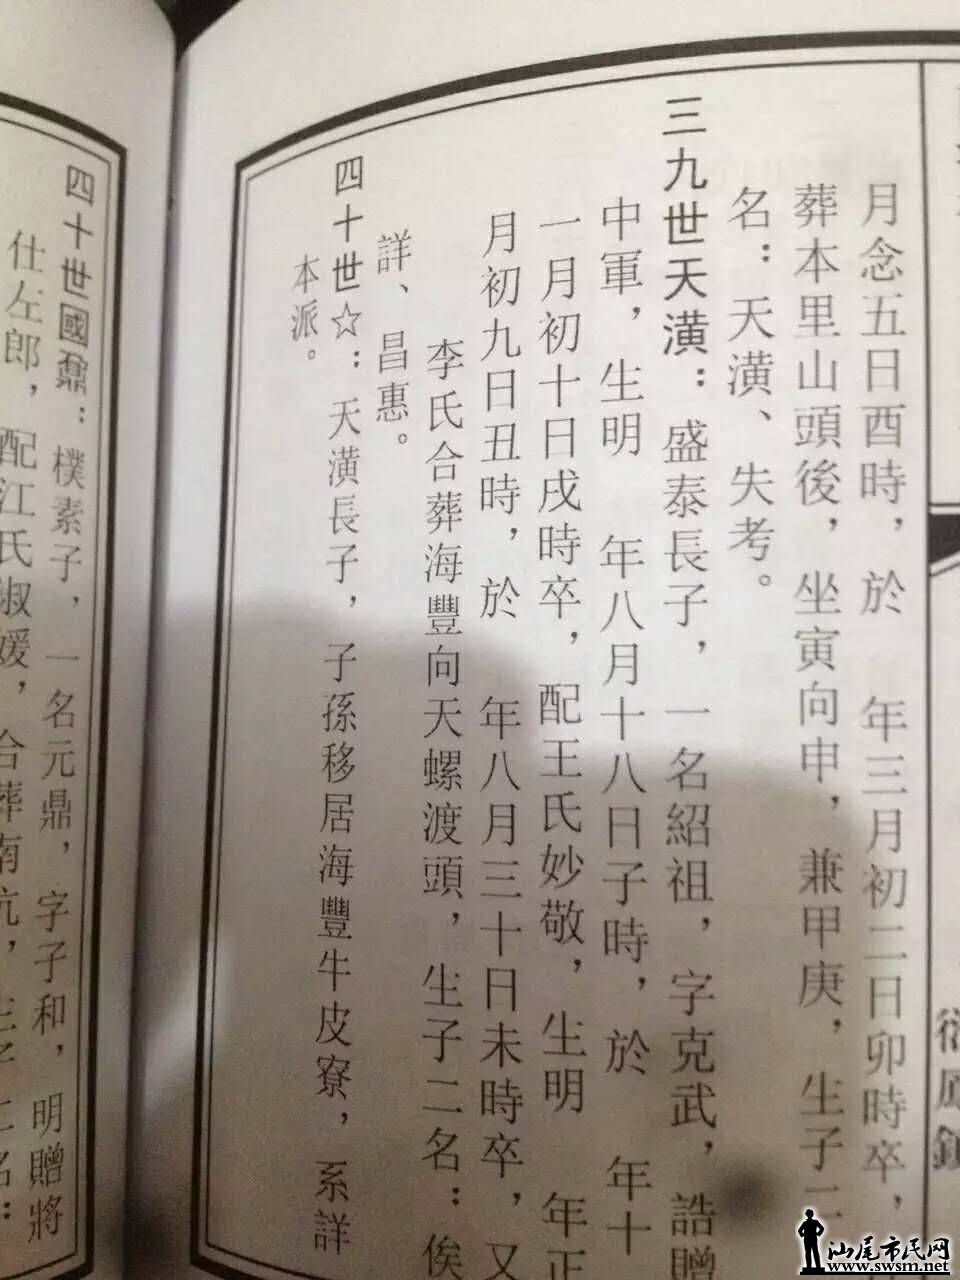 月念五日酉時，於　年三月初二日卯時卒，
葬本里山頭後，坐寅向申，兼甲庚，生子二
名：天潢、失考。
三九世天潢：盛泰長子，一名紹祖，字克武，誥贈
中軍，生明　年八月十八日子時，於　年十
一月初十日戌時卒，配王氏妙敬，生明　年正
月初九日丑時，於　年八月三十日未時卒，又
李氏合葬海豐向天螺渡頭，生子二名：俟
詳、昌惠。
四十世☆：天潢長子，子孫移居海豐牛皮寮，系詳
本派。
四十世國鼐：樸素子，一名元鼎，字子和，明贈將
仕左郎，配江氏淑媛，合葬南坑，生子二名：
汕尾市民网
www.swsm.net